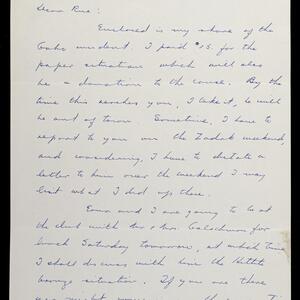 Dear Rue:
Enclosed is my share of the
I paid $15. for the
paper situation which will also
be a donation to the cause. By the
time this reaches you, I take it, he will
be out of town. Sometime, I have to
report to you on the Zadok weekend,
and considering I have to dictate a
letter to him over the weekend I may
but what I did up there.
and I are going to be at
the club with Mr & Mrs. for
lunch Saturday tomorrow, at which time
I shall discuss with him the
situation. If you are there